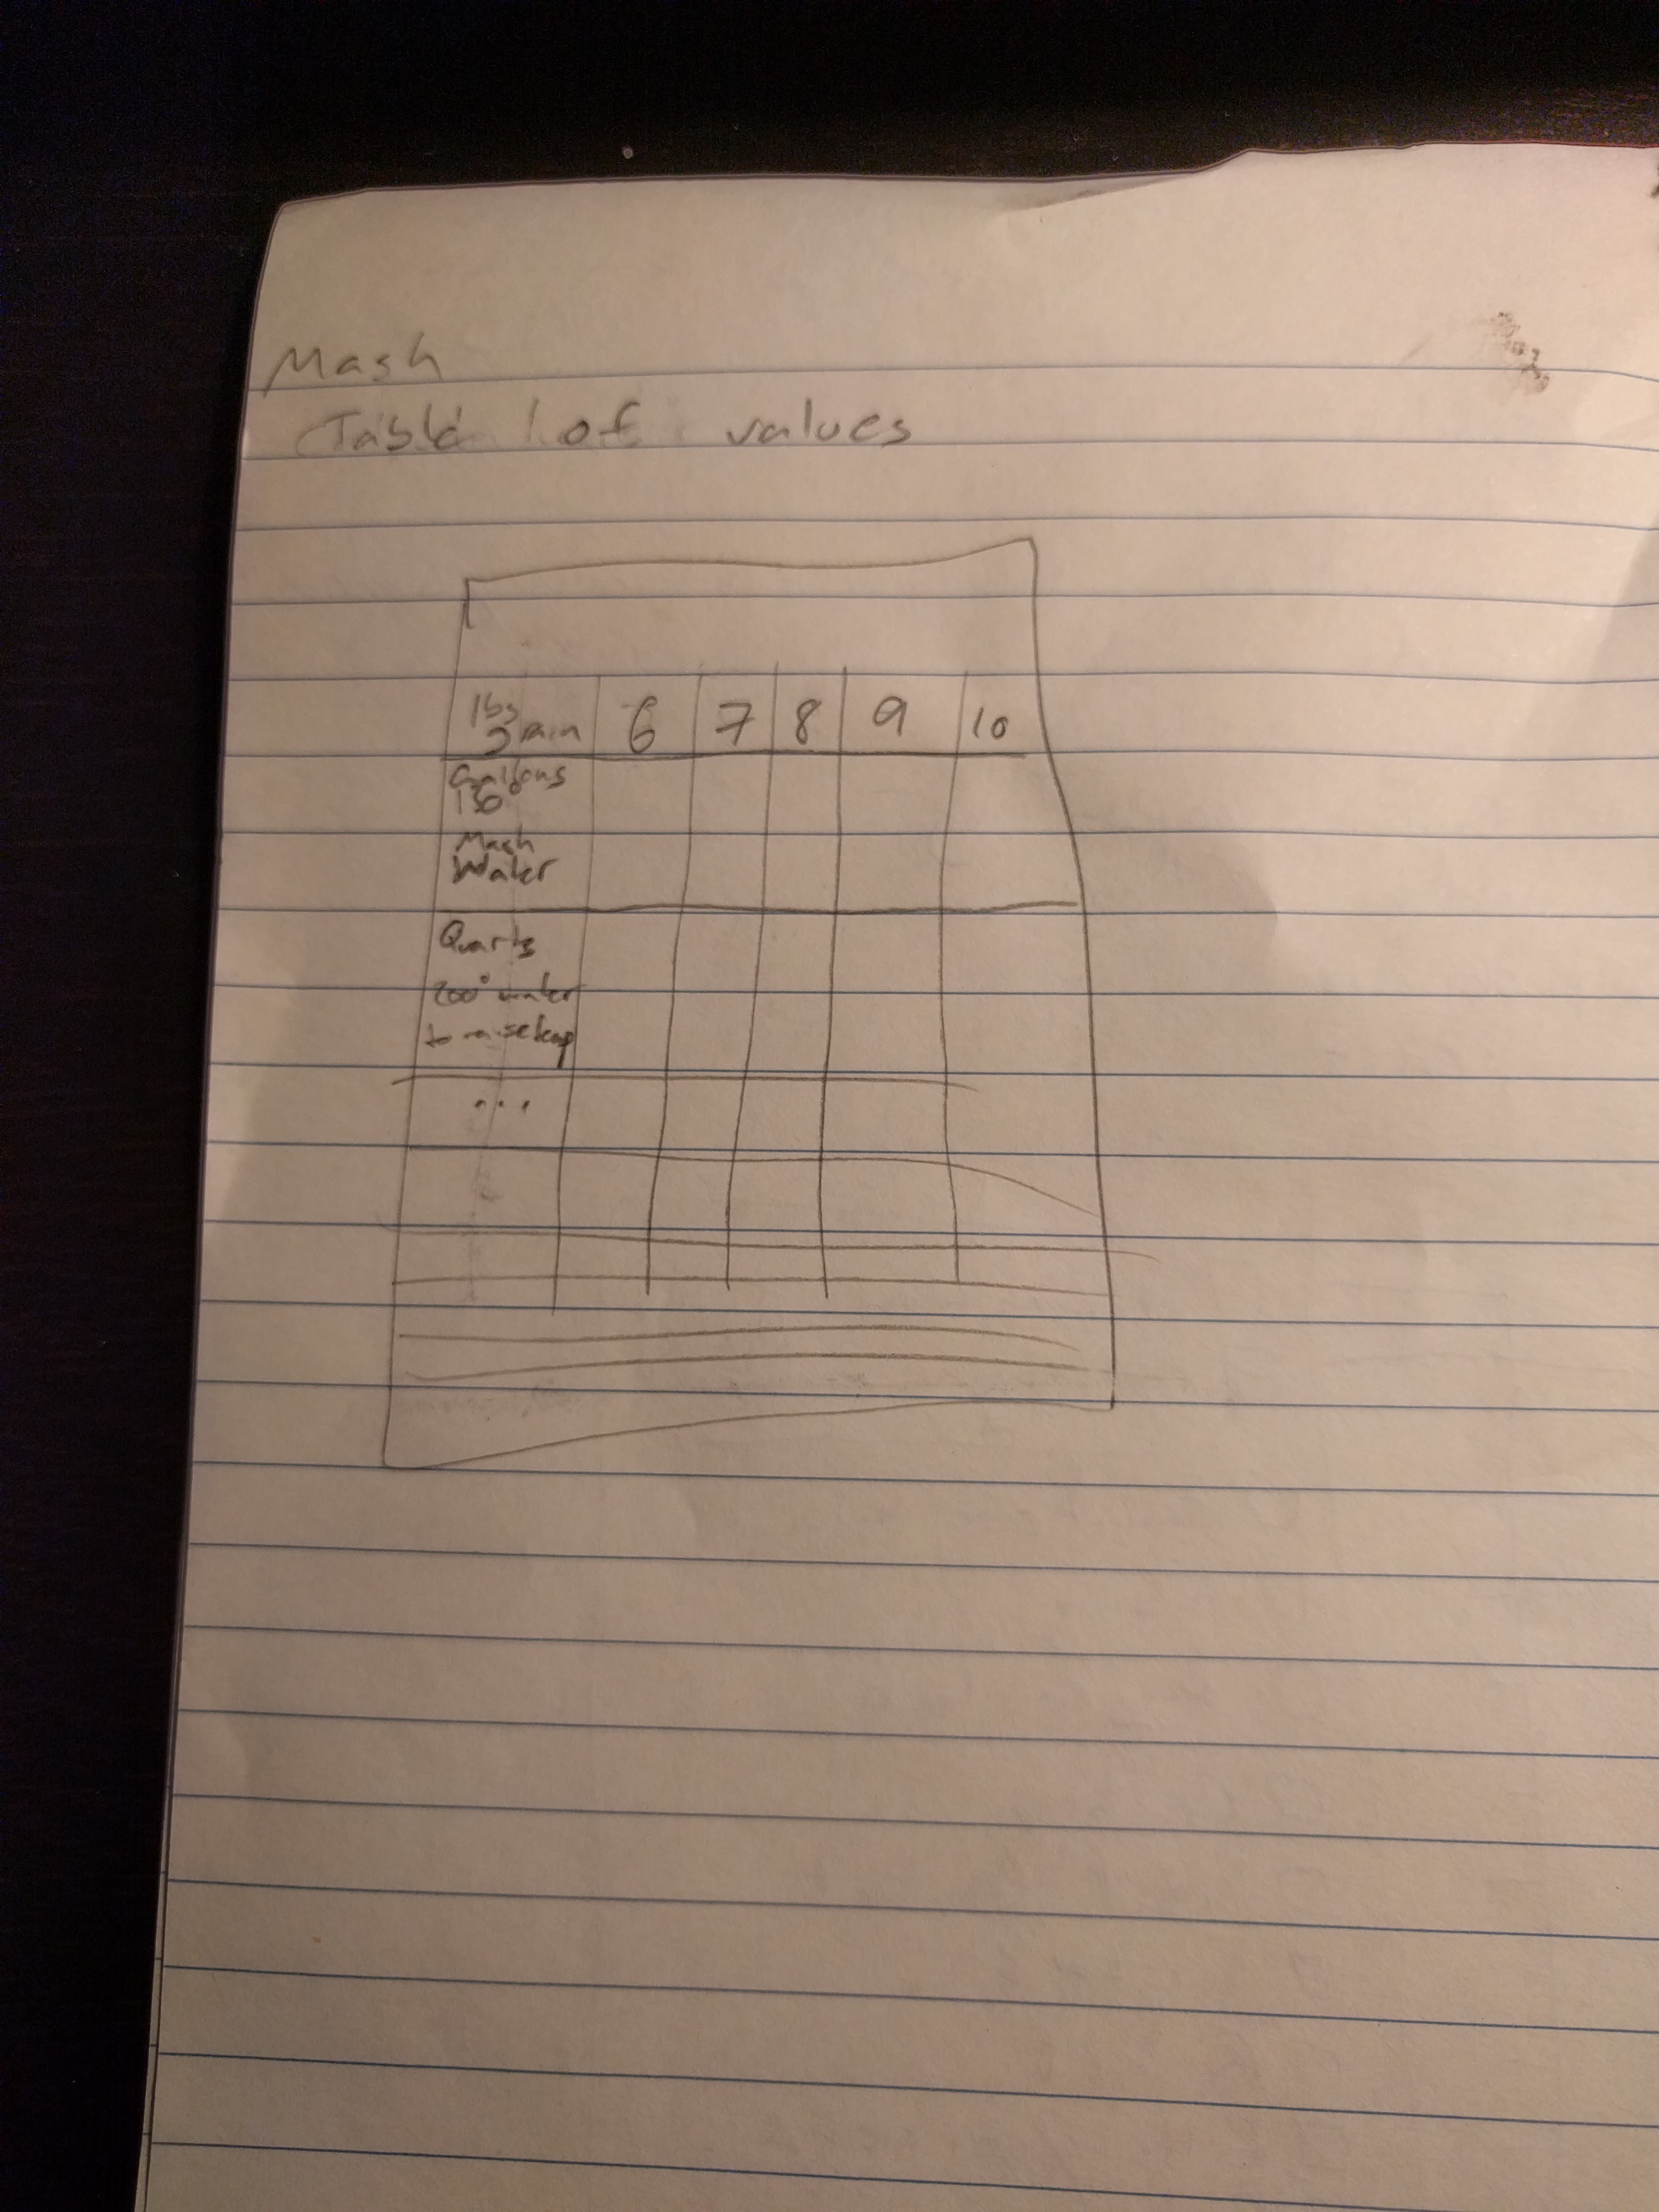 Mash
Table of values
lbs grain 6 7 8 9 10
Gallons
130°
Mash
Water
Quarts
200° water
to raise temp
...